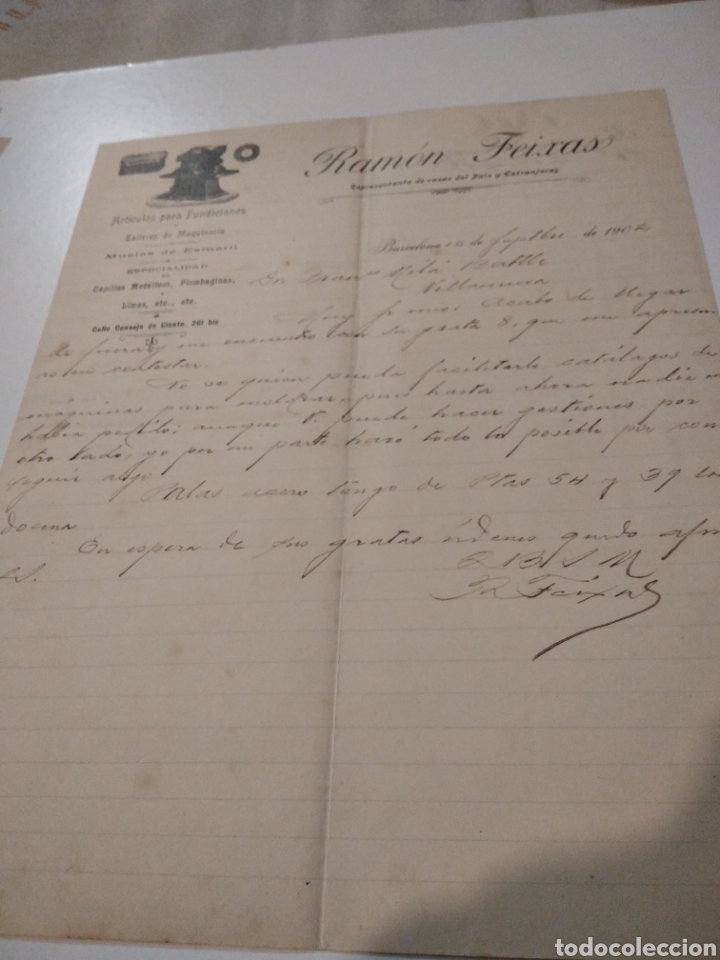 Ramón Feixas
Representante de casas del País y Extranjeras
Artículos para Fundiciones
Talleres de Maquinaria
Muelas de Esmeril
ESPECIALIDAD
EN
Cepillos Metálicos, Plombaginas,
Limas, etc., etc.
Calle Consejo de Ciento, 261 bis
Barcelona de Septbre de 1902
Dn Milá Battle
Villanueva
Muy Sr mio: Acabo de llegar
de fuera y me encuentro con su grata 8, que me apresu
ro en contestar.
No se quien pueda facilitarle catálagos de
máquinas para moldear, pues hasta ahora nadie me
habia pedido; aunque V. puede hacer gestiones por
otro lado, yo por mi parte haré todo lo posible por con
seguir algo.
Palas acero tengo de Ptas 54 y 39 la
docena
En espera de sus gratas órdenes quedo afmo
S.S. Q B S M
R Feixas
todocoleccion